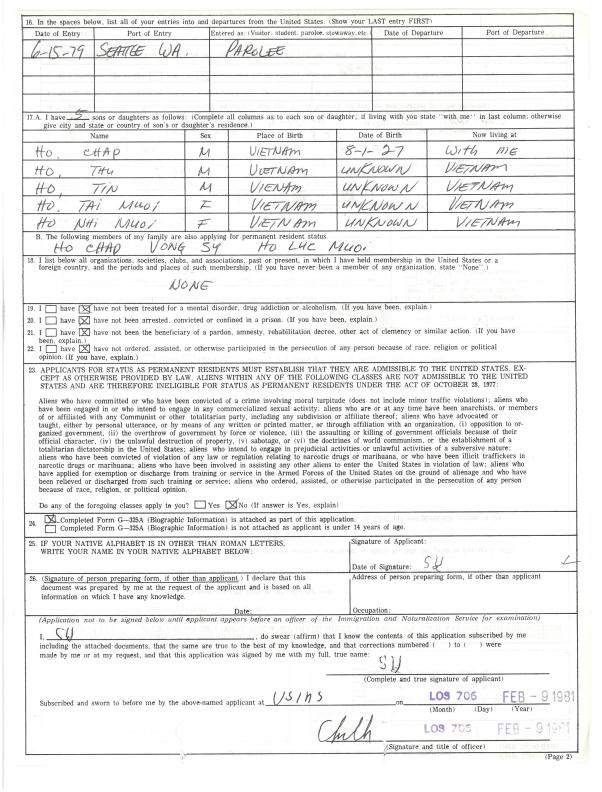 16. In the spaces below, list all of your entries into and departures from the United States. (Show your LAST entry FIRST)
Date of Entry Port of Entry Entered as: (Visitor, student, parolee, stowaway, etc. Date of Departure Port of Departure
6-15-79 SEATTLE WA. PAROLEE
17. A. I have 5 sons or daughters as follows: (Complete all columns as to each son or daughter; if living with you state "with me" in last column; otherwise
give city and state or country of son's or daughter's residence.)
Name Sex Place of Birth Date of Birth Now living at
Ho, CHAP M VIETNAM 8-1-27 With ME
Ho, THU M VIETNAM UNKNOWN VIETNAM
Ho, TIN M VIENAM UNKNOWN VIETNAM
Ho. TAI MUOI F VIETNAM UNKNOWN VIETNAM
Ho NHI MUOI F VIETNAM UNKNOWN VIETNAM
B. The following members of my family are also applying for permanent resident status
Ho CHAP VONG SY Ho LUC MUOI
18. I list below all organizations, societies, clubs, and associations, past or present, in which I have held membership in the United States or a
foreign country, and the periods and places of such membership. (If you have never been a member of any organization, state "None".)
NONE
19. I have have not been treated for a mental disorder, drug addiction or alcoholism. (If you have been, explain.)
20. I have have not been arrested, convicted or confined in a prison. (If you have been, explain.)
21. I have have not been the beneficiary of a pardon, amnesty, rehabilitation decree, other act of clemency or similar action. (If you have
been, explain.)
22. I have have not ordered, assisted, or otherwise participated in the persecution of any person because of race, religion or political
opinion. (If you have, explain.)
23. APPLICANTS FOR STATUS AS PERMANENT RESIDENTS MUST ESTABLISH THAT THEY ARE ADMISSIBLE TO THE UNITED STATES, EX-
CEPT AS OTHERWISE PROVIDED BY LAW, ALIENS WITHIN ANY OF THE FOLLOWING CLASSES ARE NOT ADMISSIBLE TO THE UNITED
STATES AND ARE THEREFORE INELIGIBLE FOR STATUS AS PERMANENT RESIDENTS UNDER THE ACT OF OCTOBER 28, 1977:
Aliens who have committed or who have been convicted of a crime involving moral turpitude (does not include minor traffic violations); aliens who
have been engaged in or who intend to engage in any commercialized sexual activity; aliens who are or at any time have been anarchists, or members
of or affiliated with any Communist or other totalitarian party, including any subdivision or affiliate thereof; aliens who have advocated or
taught, either by personal utterance, or by means of any written or printed matter, or through affiliation with an organization, (i) opposition to or-
ganized government, (ii) the overthrow of government by force or violence, (iii) the assaulting or killing of government officials because of their
official character, (iv) the unlawful destruction of property, (v) sabotage, or (vi) the doctrines of world communism, or the establishment of a
totalitarian dictatorship in the United States; aliens who intend to engage in prejudicial activities or unlawful activities of a subversive nature;
aliens who have been convicted of violation of any law or regulation relating to narcotic drugs or marihuana, or who have been illicit traffickers in
narcotic drugs or marihuana; aliens who have been involved in assisting any other aliens to enter the United States in violation of law; aliens who
have applied for exemption or discharge from training or service in the Armed Forces of the United States on the ground of alienage and who have
been relieved or discharged from such training or service; aliens who ordered, assisted, or otherwise participated in the persecution of any person
because of race, religion, or political opinion.
Do any of the foregoing classes apply to you? Yes No (If answer is Yes, explain)
24. Completed Form G—325A (Biographic Information) is attached as part of this application.
Completed Form G—325A (Biographic Information) is not attached as applicant is under 14 years of age.
25. IF YOUR NATIVE ALPHABET IS IN OTHER THAN ROMAN LETTERS,
WRITE YOUR NAME IN YOUR NATIVE ALPHABET BELOW:
Signature of Applicant:
Date of Signature: SY
26. (Signature of person preparing form, if other than applicant.) I declare that this
document was prepared by me at the request of the applicant and is based on all
information on which I have any knowledge.
Date:
Address of person preparing form, if other than applicant
Occupation:
(Application not to be signed below until applicant appears before an officer of the Immigration and Naturalization Service for examination)
I, SY, do swear (affirm) that I know the contents of this application subscribed by me
including the attached documents, that the same are true to the best of my knowledge, and that corrections numbered ( ) to ( ) were
made by me or at my request, and that this application was signed by me with my full, true name:
SY
(Complete and true signature of applicant)
Subscribed and sworn to before me by the above-named applicant at USINS on LOS 706 FEB - 9 1981
(Month) (Day) (Year)
LOS 706 FEB - 9 1981
(Signature and title of officer)
(Page 2)